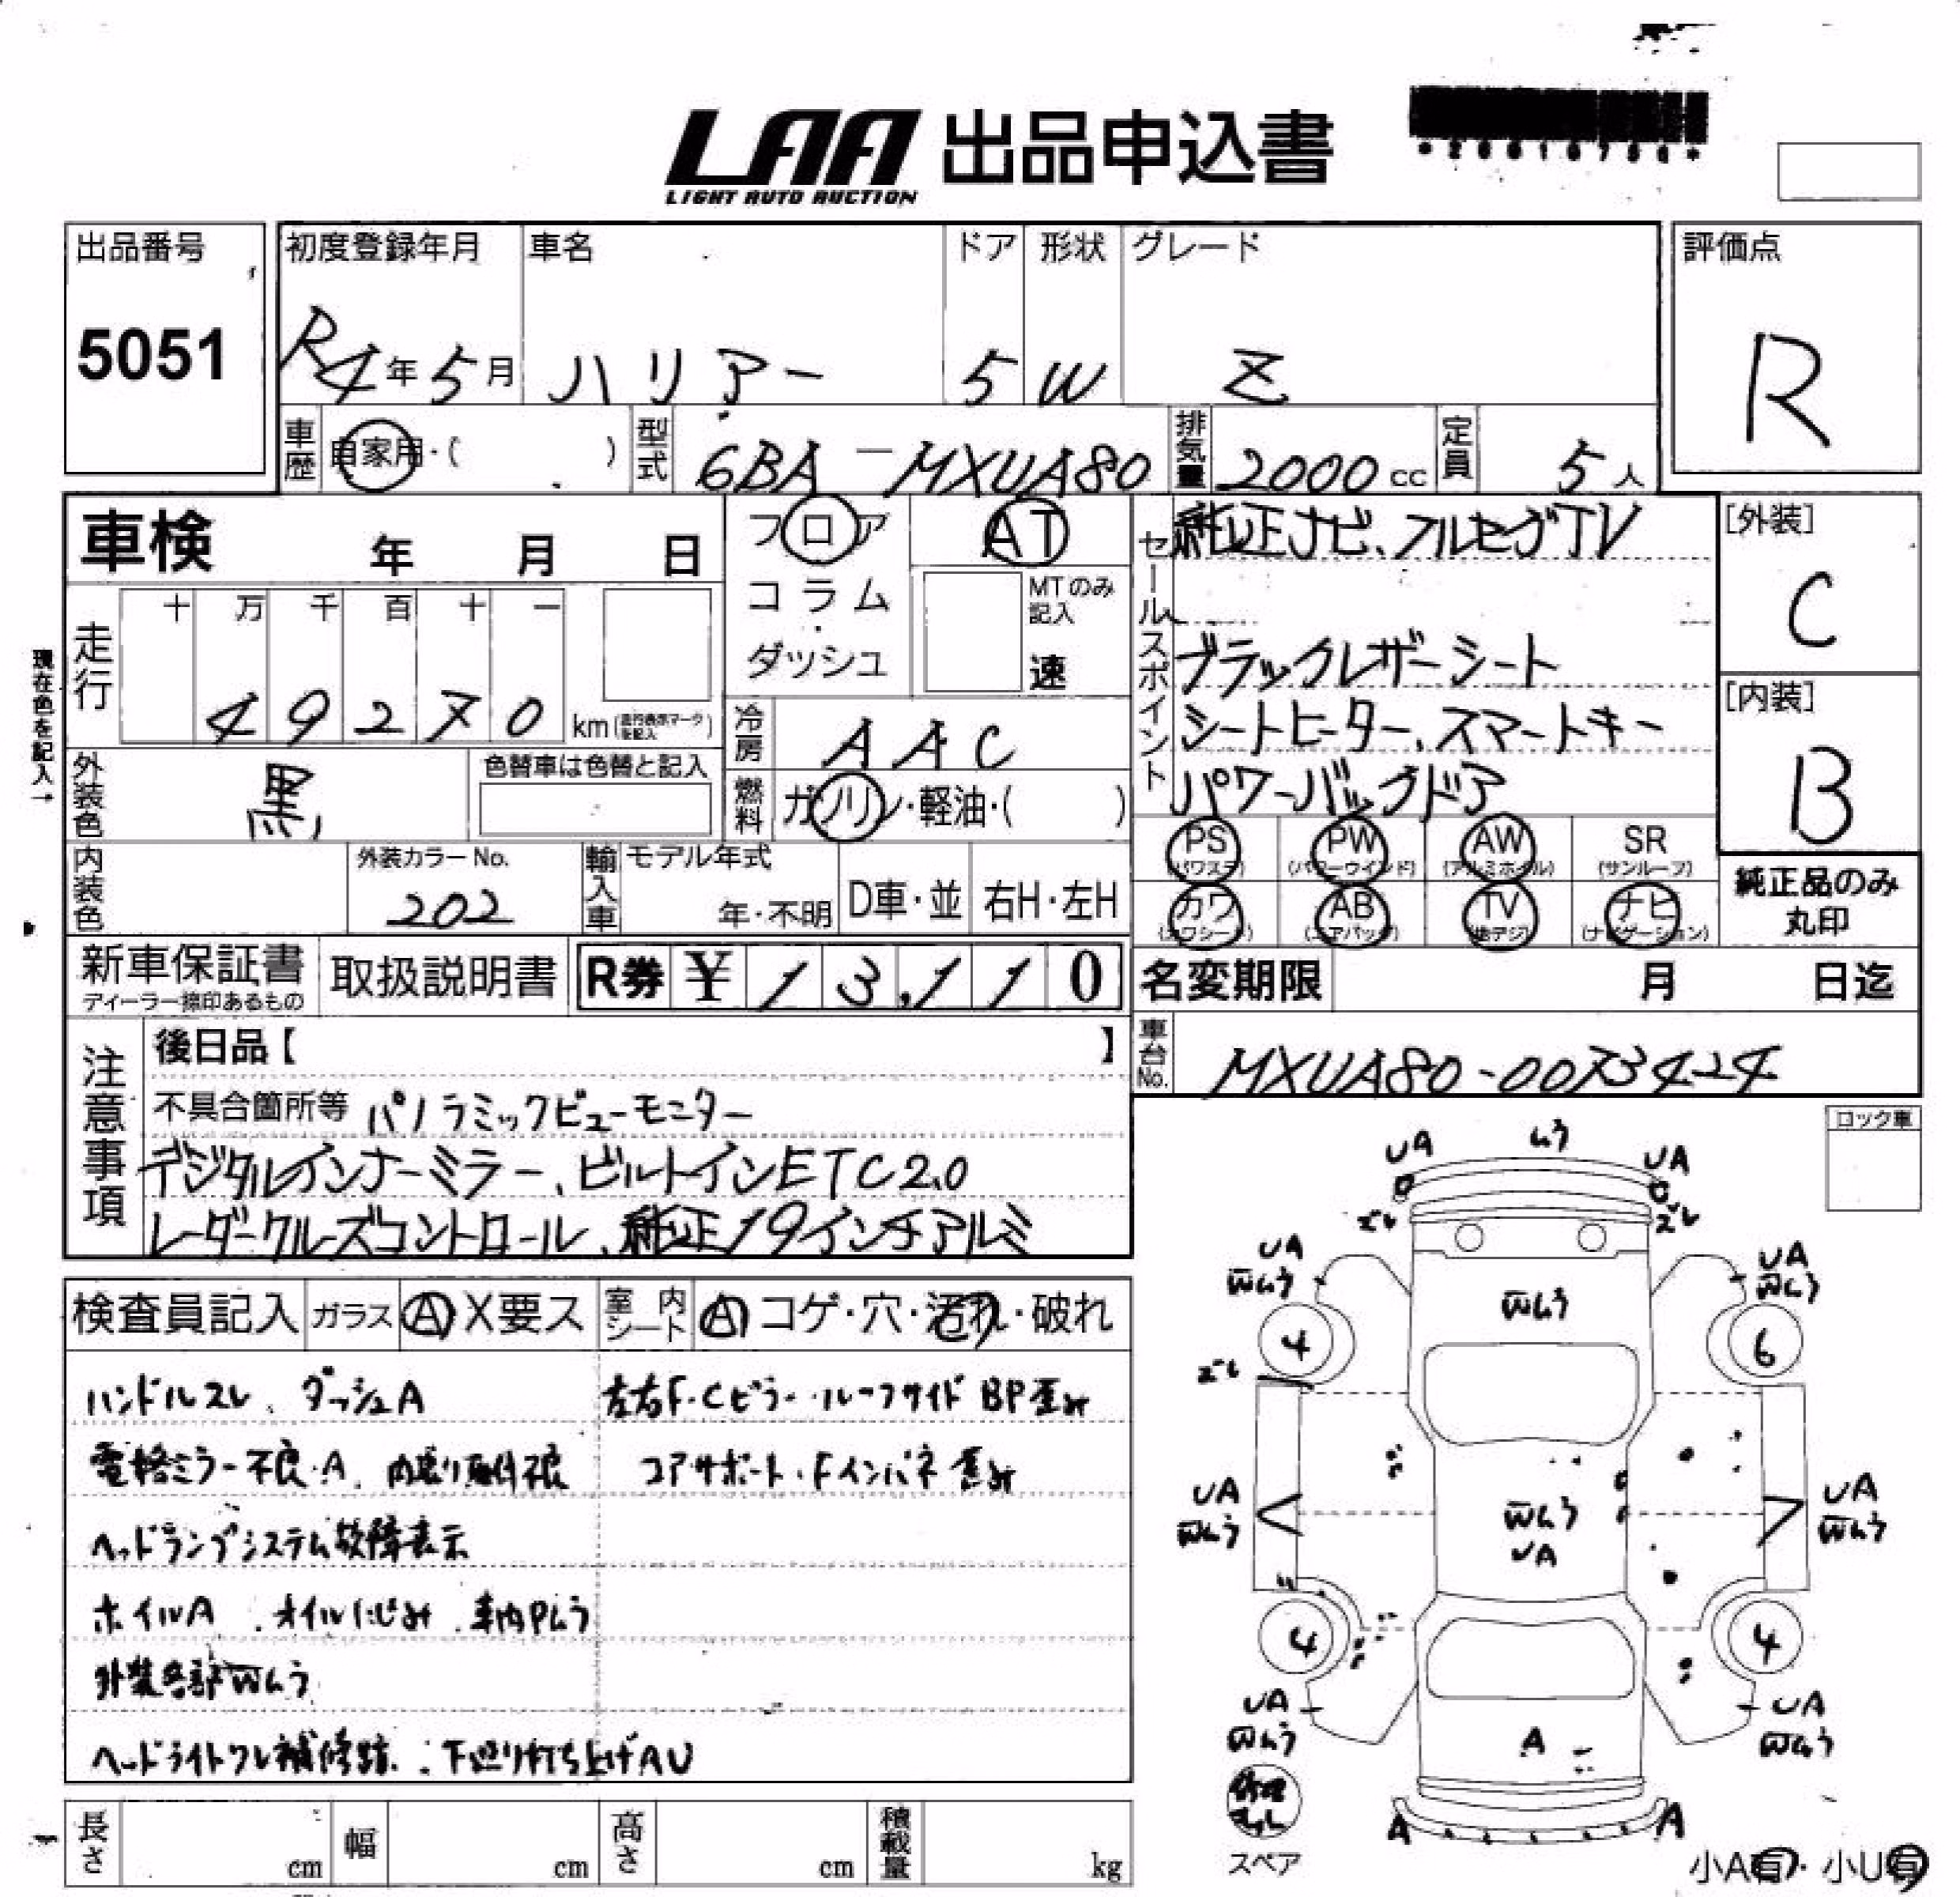 LAA 出品申込書
LIGHT AUTO AUCTION
出品番号 初度登録年月 車名 ドア 形状 グレード 評価点
5051 R4年5月 ハリアー 5 W Z R
車歴 自家用・( ) 型式 6BA-MXUA80 排気量 2000cc 定員 5人
車検 年 月 日 フロア AT セールスポイント 純正ナビ、フルセグTV [外装]
C
コラム MTのみ記入
ダッシュ 速
走行 十 万 千 百 十 一
4 9 2 7 0 km
現在色を記入→
ブラックレザーシート
シートヒーター、スマートキー
パワーバックドア
[内装]
B
冷房 AAC
外装色 黒 色替車は色替と記入 燃料 ガソリン・軽油・( )
PS (パワステ) PW (パワーウインド) AW (アルミホイル) SR (サンルーフ)
カワ (カワシート) AB (エアバッグ) TV (地デジ) ナビ (ナビゲーション)
純正品のみ
丸印
内装色 外装カラーNo. 202 輸入車 モデル年式 年・不明 D車・並 右H・左H
新車保証書 取扱説明書 R券 ¥ 1 3,1 1 0 名変期限 月 日迄
ディーラー捺印あるもの
車台No. MXUA80-0073424
注意事項 後日品【 】
不具合箇所等 パノラミックビューモニター
デジタルインナーミラー、ビルトインETC2.0
レーダークルーズコントロール、純正19インチアルミ
ロック車
検査員記入 ガラス A X要ス 室内シート A コゲ・穴・汚れ・破れ
ハンドルスレ、ダッシュA 左右F・Cピラー・ルーフサイドBP歪み
電格ミラー不良・A、内張り取付不良 コアサポート・Fインパネ歪み
ヘッドランプシステム故障表示
ホイルA、オイルにじみ、車内Pムラ
外装各部Wムラ
ヘッドライトワレ補修跡、下廻り打ち上げAU
UA ムラ UA
ズレ ズレ
UA UA
Wムラ Wムラ Wムラ
4 6
ズレ
UA Wムラ UA
Wムラ UA Wムラ
4 4
UA UA
Wムラ A Wムラ
修理キット
A A
スペア
小A有・小U有
長さ cm 幅 cm 高さ cm 積載量 kg